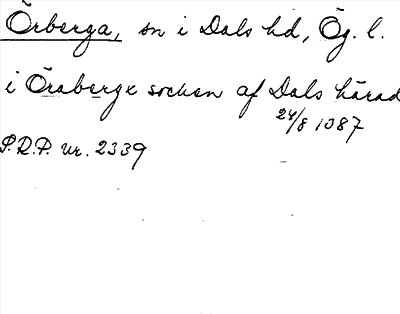 Örberga, sn i Dals hd, Ög. l.
i Öraberge socken af Dals härad
24/8 1387
S.R.P. nr. 2339